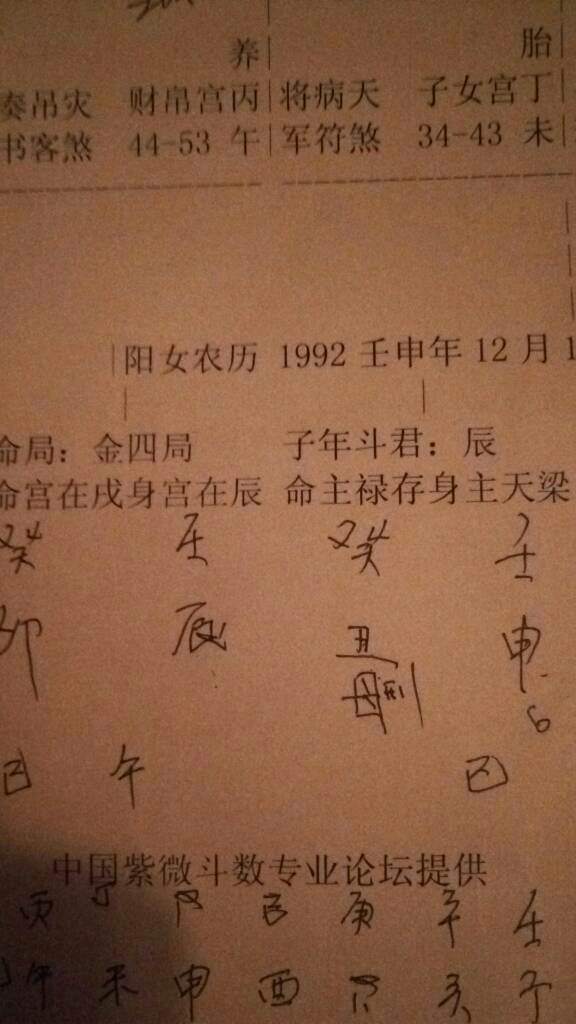 养 胎
奏吊灾 财帛宫丙 将病天 子女宫丁
书客煞 44-53 午 军符煞 34-43 未
阳女农历 1992 壬申年 12 月 1
命局：金四局 子年斗君：辰
命宫在戌身宫在辰 命主禄存身主天梁
癸 壬 癸 壬
卯 辰 丑 申
6
巳 午 巳
中国紫微斗数专业论坛提供
丙 丁 戊 己 庚 辛 壬
午 未 申 酉 戌 亥 子